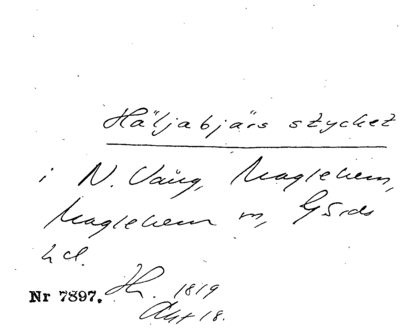 Häljabjärs stycket
i N. Väng, Maglehem,
Maglehem sn, Gärds
hd.
Nr 7897. Hh. 1819
Akt 18.